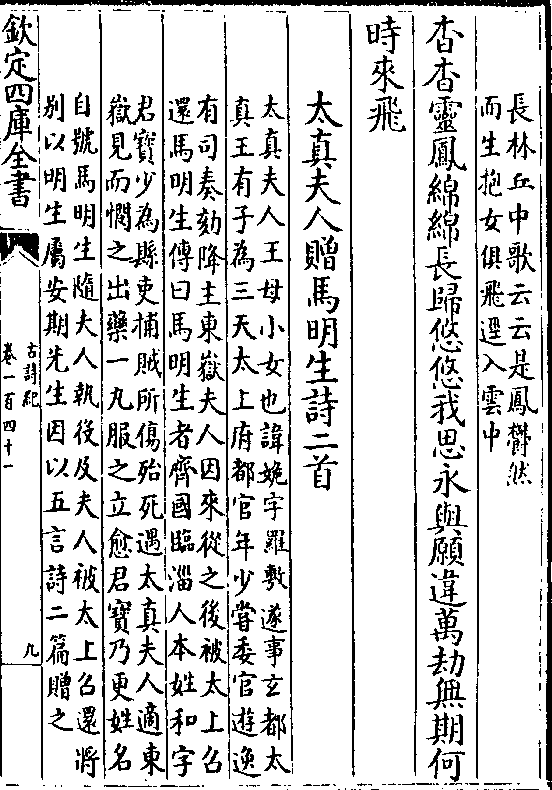 長林丘中歌云云是鳳欝然
而生抱女俱飛逕入雲中
杳杳靈鳳綿綿長歸悠悠我思永與願違萬劫無期何
時來飛
太真夫人贈馬明生詩二首
太真夫人王母小女也諱婉字羅敷遂事玄都太
真王有子為三天太上府都官年少嘗委官遊逸
有司奏劾降主東嶽夫人因來從之後被太上召
還馬明生傳曰馬明生者齊國臨淄人本姓和字
君寶少為縣吏捕賊所傷殆死遇太真夫人適東
嶽見而憫之出藥一丸服之立愈君寶乃更姓名
自號馬明生隨夫人執後及夫人被太上召還將
别以明生屬安期先生因以五言詩二篇贈之
欽定四庫全書
古詩紀
卷一百四十一
九